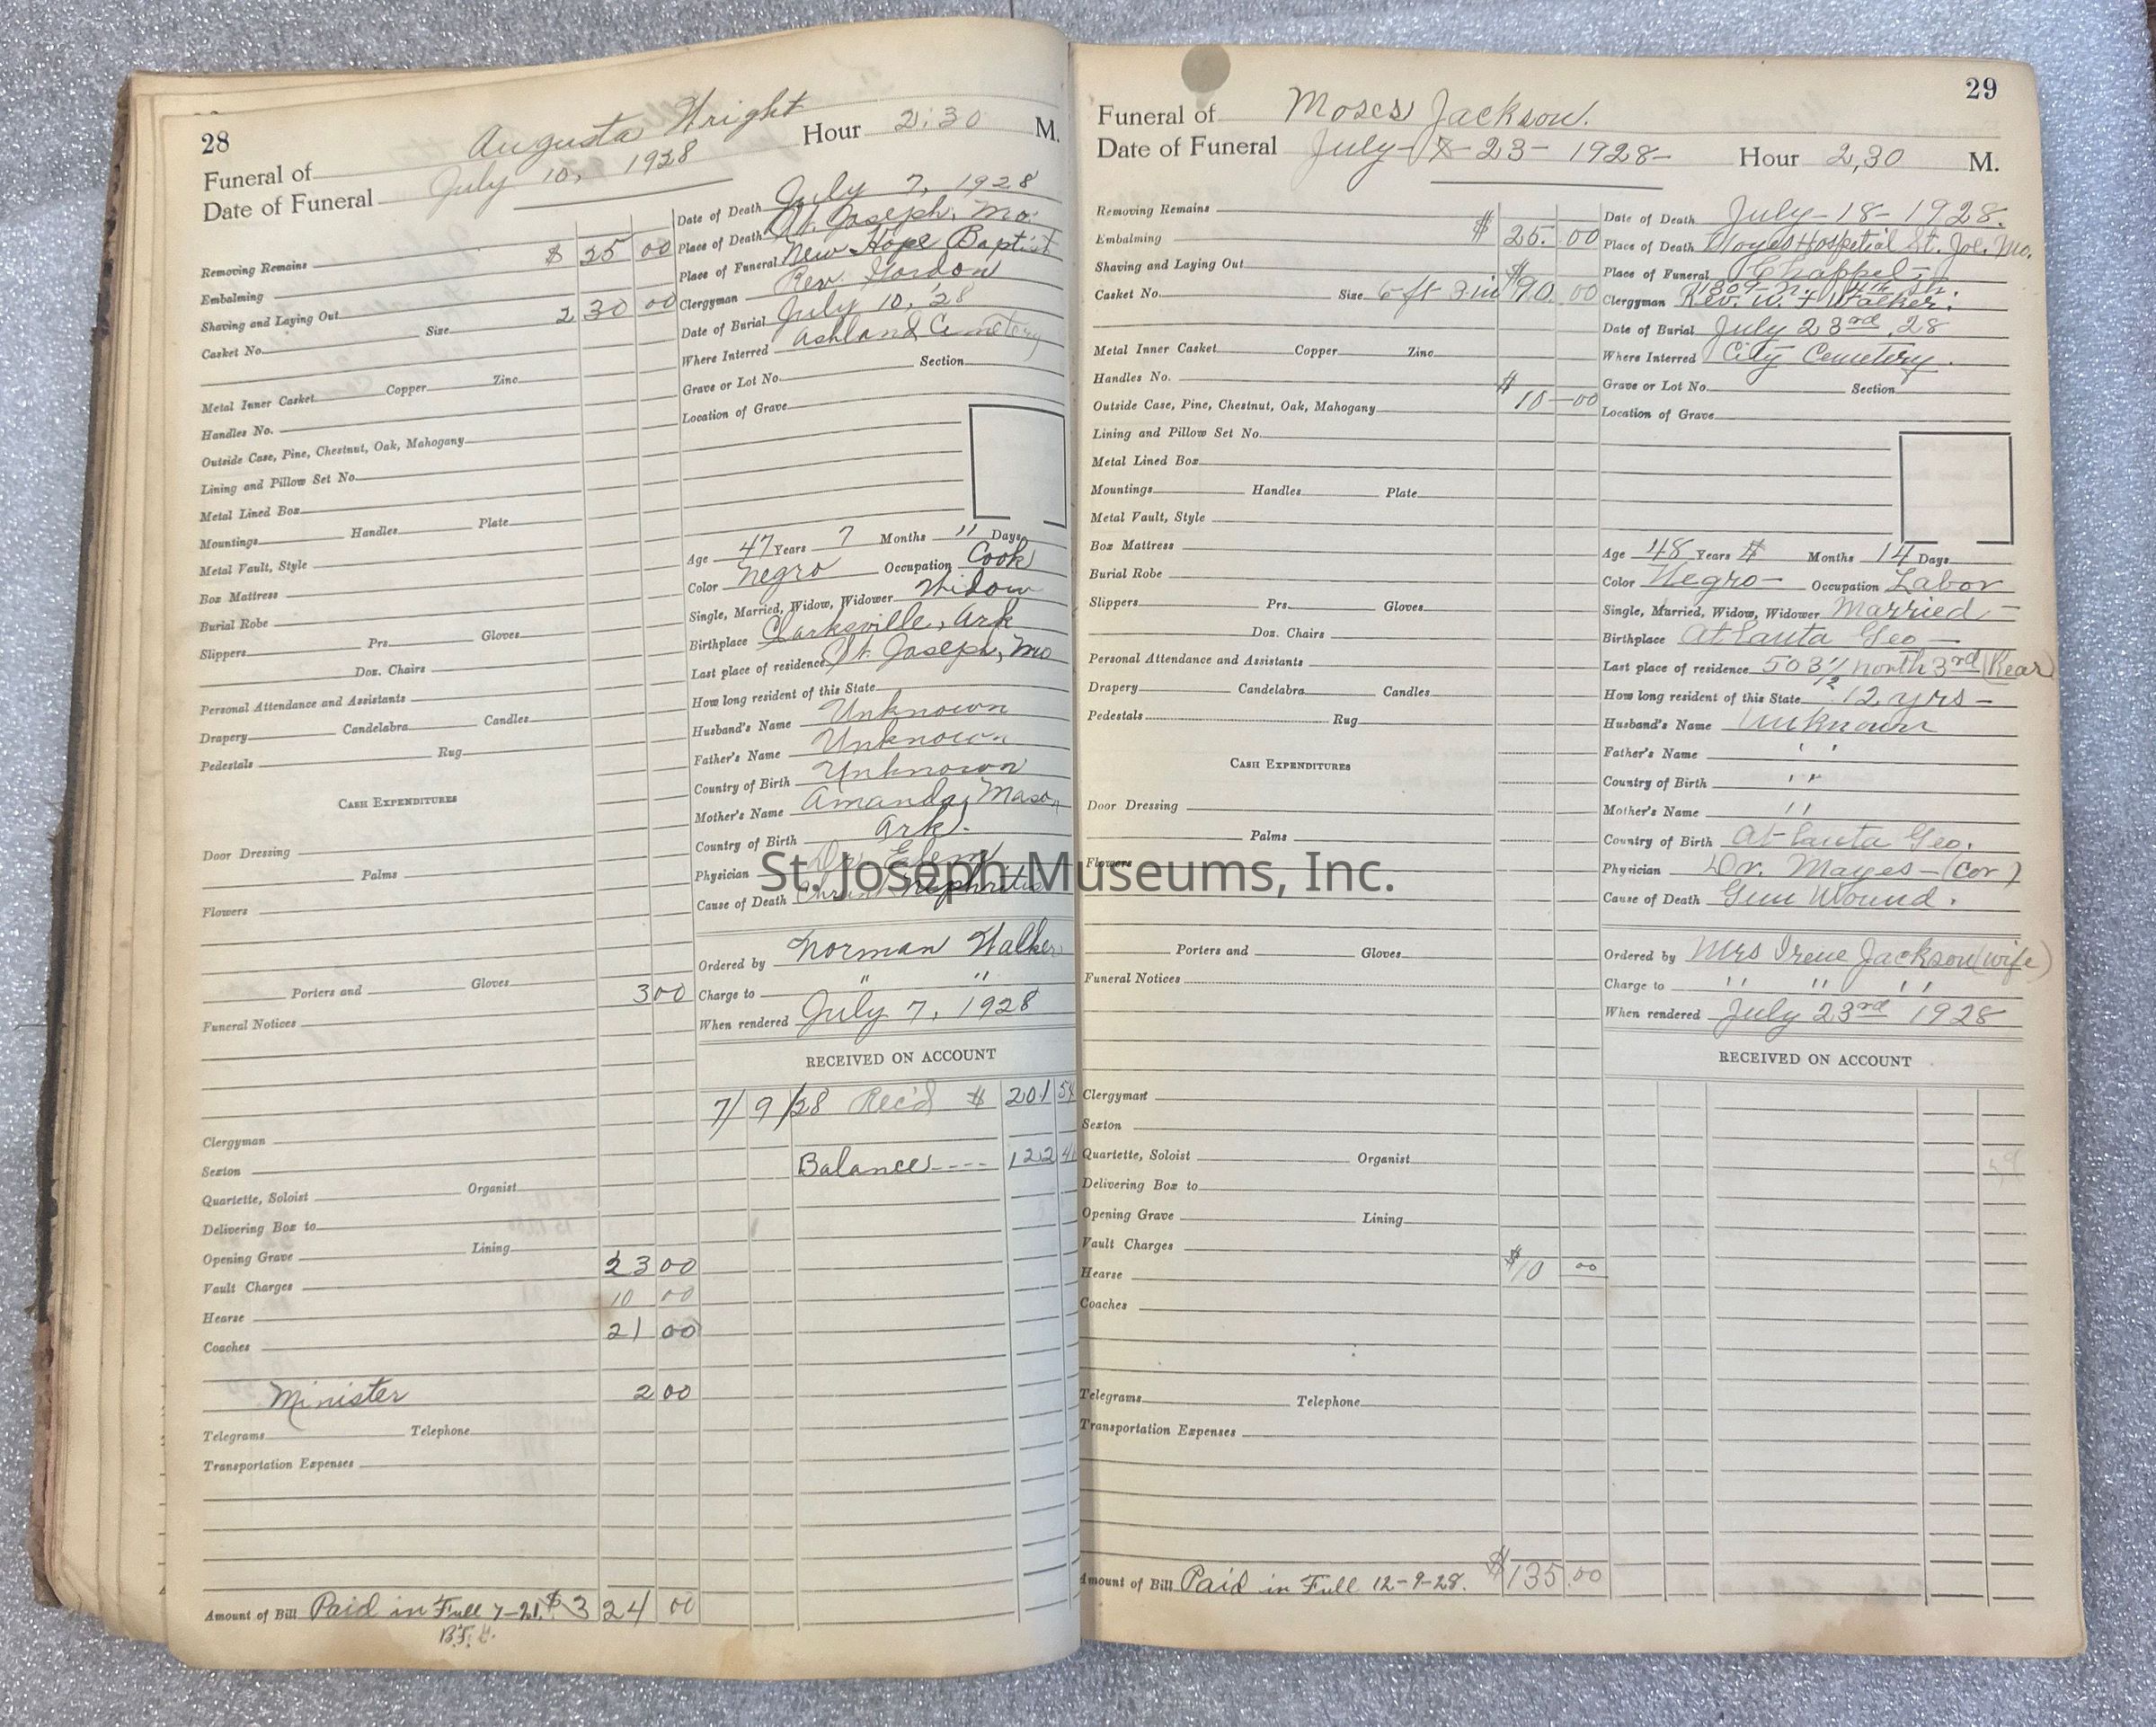 28
Funeral of Augusta Wright Hour 2:30 M.
Date of Funeral July 10, 1928
Removing Remains
Embalming $ 25 00
Shaving and Laying Out
Casket No. Size 2 30 00
Metal Inner Casket Copper Zinc
Handles No.
Outside Case, Pine, Chestnut, Oak, Mahogany
Lining and Pillow Set No.
Metal Lined Box
Mountings Handles Plate
Metal Vault, Style
Box Mattress
Burial Robe
Slippers Prs. Gloves
Doz. Chairs
Personal Attendance and Assistants
Drapery Candelabra Candles
Pedestals Rug
CASH EXPENDITURES
Door Dressing
Palms
Flowers
Porters and Gloves
Funeral Notices 3 00
Clergyman
Sexton
Quartette, Soloist Organist
Delivering Box to
Opening Grave Lining
Vault Charges 23 00
Hearse 10 00
Coaches 21 00
Minister 2 00
Telegrams Telephone
Transportation Expenses
Amount of Bill Paid in Full 7-21. $ 3 24 00
Date of Death July 7, 1928
Place of Death St. Joseph, Mo.
Place of Funeral New Hope Baptist
Clergyman Rev. Gordon
Date of Burial July 10, '28
Where Interred Ashland Cemetery
Grave or Lot No. Section
Location of Grave
Age 47 Years 7 Months 11 Days
Color Negro Occupation Cook
Single, Married, Widow, Widower Widow
Birthplace Clarksville, Ark
Last place of residence St. Joseph, Mo
How long resident of this State
Husband's Name Unknown
Father's Name Unknown
Country of Birth Unknown
Mother's Name Amanda Mason
Country of Birth Ark.
Physician Dr.
Cause of Death Nephritis
Ordered by Norman Walker
Charge to " "
When rendered July 7, 1928
RECEIVED ON ACCOUNT
7/ 9 /28 Rec'd $ 201 54
Balance ---- 122 4
29
Funeral of Moses Jackson.
Date of Funeral July- 23- 1928- Hour 2,30 M.
Removing Remains
Embalming $ 25. 00
Shaving and Laying Out
Casket No. Size 6 ft 3 in $90. 00
Metal Inner Casket Copper Zinc
Handles No.
Outside Case, Pine, Chestnut, Oak, Mahogany $ 10-00
Lining and Pillow Set No.
Metal Lined Box
Mountings Handles Plate
Metal Vault, Style
Box Mattress
Burial Robe
Slippers Prs. Gloves
Doz. Chairs
Personal Attendance and Assistants
Drapery Candelabra Candles
Pedestals Rug
CASH EXPENDITURES
Door Dressing
Palms
Flowers
Porters and Gloves
Funeral Notices
Clergyman
Sexton
Quartette, Soloist Organist
Delivering Box to
Opening Grave Lining
Vault Charges
Hearse $10 00
Coaches
Telegrams Telephone
Transportation Expenses
Amount of Bill Paid in Full 12-9-28. $135.00
Date of Death July-18-1928.
Place of Death Noyes Hospetial St. Joe. Mo.
Place of Funeral Chappel-
1809- N. 4th St.
Clergyman Rev. W. F Walker.
Date of Burial July 23rd 28
Where Interred City Cemetery.
Grave or Lot No. Section
Location of Grave
Age 48 Years Months 14 Days
Color Negro- Occupation Labor
Single, Married, Widow, Widower Married-
Birthplace Atlanta Geo-
Last place of residence 503 1/2 north 3rd (Rear)
How long resident of this State 12 yrs-
Husband's Name Unknown
Father's Name ' '
Country of Birth ' '
Mother's Name ' '
Country of Birth Atlanta Geo.
Physician Dr. Mayes-(Cor)
Cause of Death Gun Wound.
Ordered by Mrs Irene Jackson (wife)
Charge to " " "
When rendered July 23rd 1928
RECEIVED ON ACCOUNT
St. Joseph Museums, Inc.